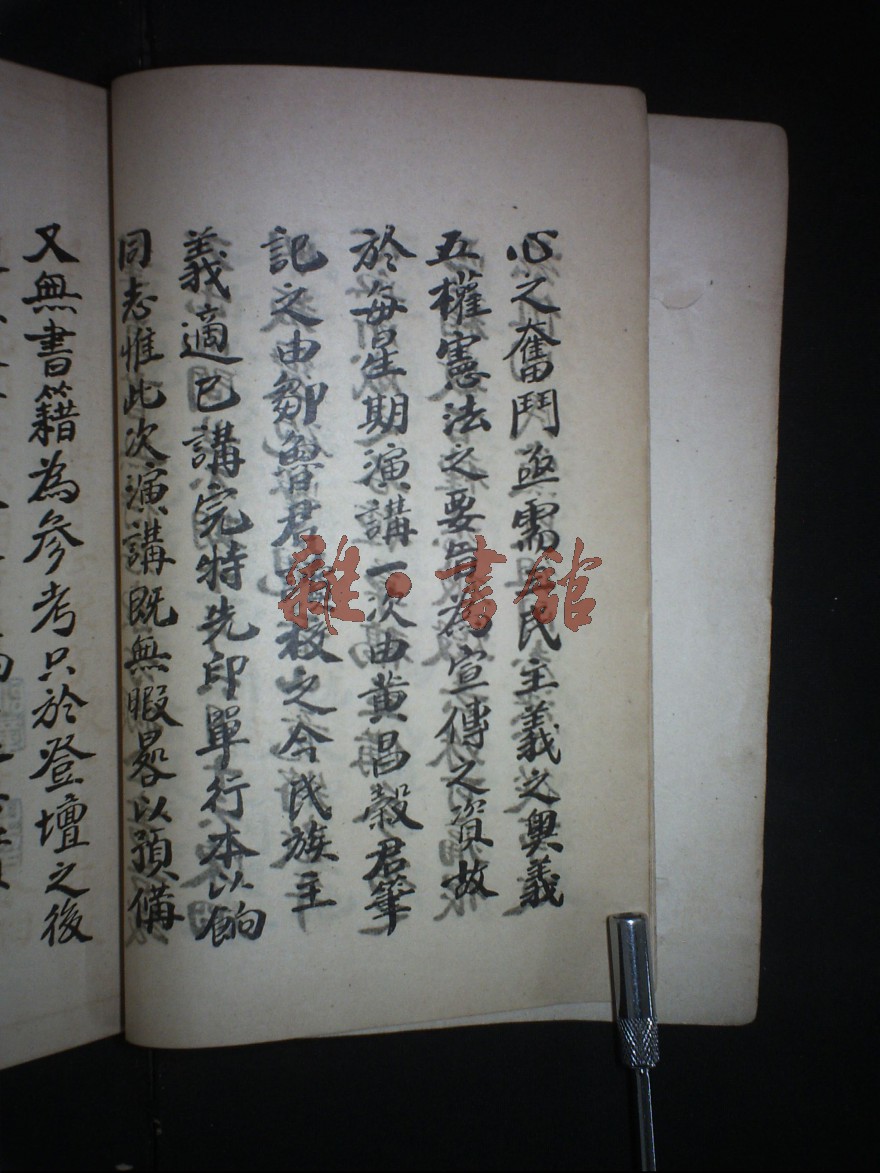 心之奮鬥亟需三民主義之奧義
五權憲法之要旨為宣傳之資故
於每星期演講一次由黃昌榖君筆
記之由鄒魯君讀校之今民族主
義適已講完特先印單行本以餉
同志惟此次演講既無暇晷以預備
又無書籍為參考只於登壇之後
雜·書館